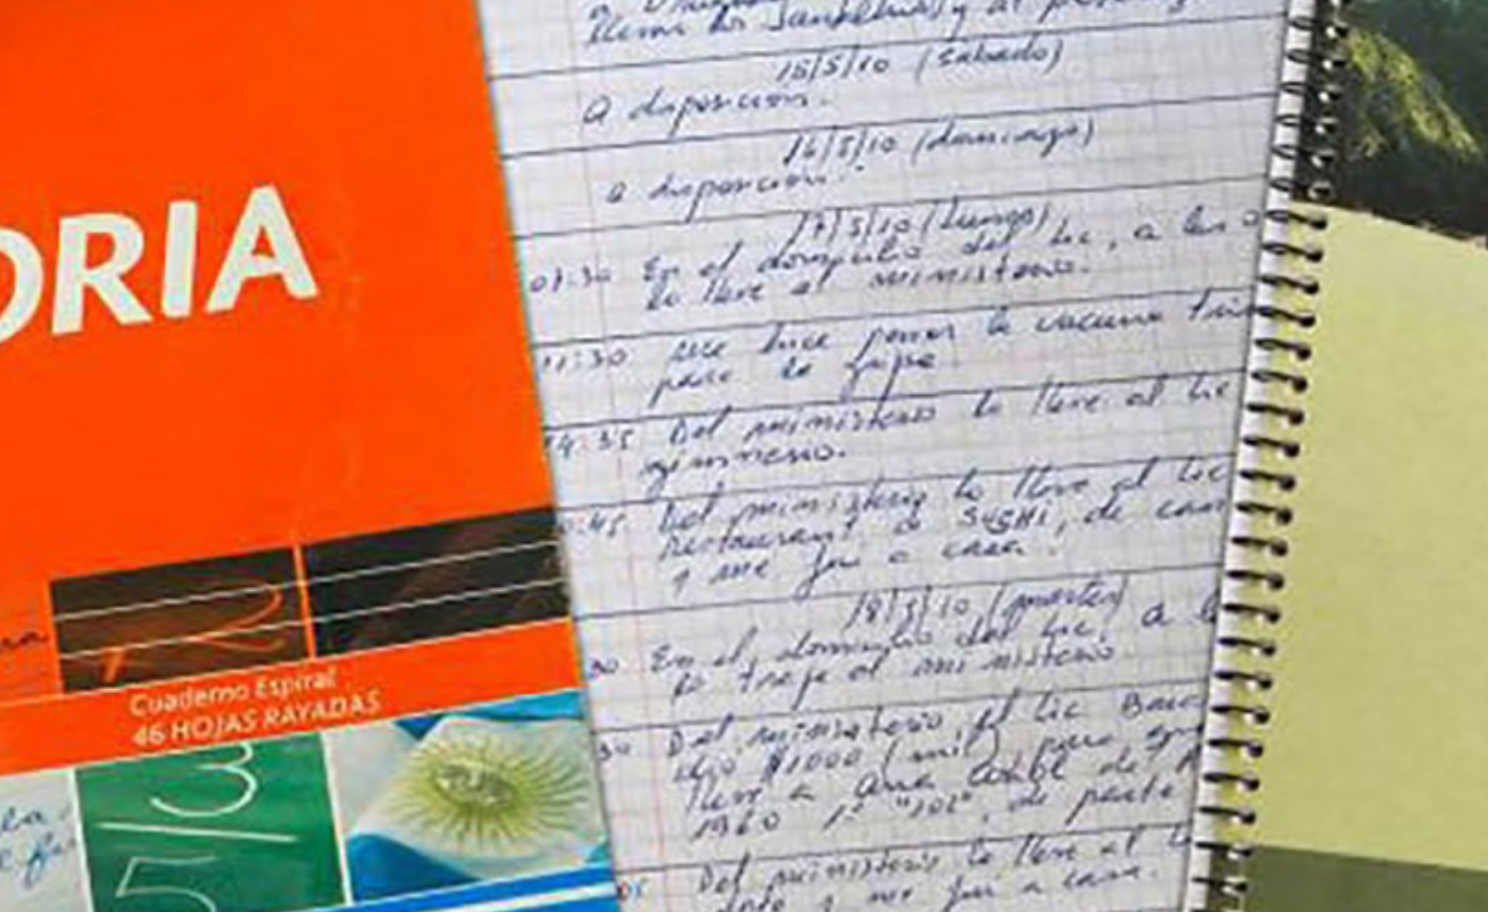 ORIA
Cuaderno Espiral
46 HOJAS RAYADAS
5/3
llevar los y al
15/5/10 (sabado)
a disposición.
16/5/10 (domingo)
a disposición.
17/5/10 (lunes)
07:30 En el domicilio del Lic, a las
lo lleve al ministerio.
11:30 me hice poner la vacuna
para la gripe
14:35 Del ministerio lo lleve al Lic
gimnasio.
:45 Del ministerio lo lleve al Lic
restaurant de SUSHI, de
y me fui a casa.
18/5/10 (martes)
30 En el domicilio del Lic, a
lo traje al ministerio
30 Del ministerio, el Lic
dijo $1000 (mil) para
lleve a de
1960 1º "102", de parte
05 Del ministerio lo lleve al
y me fui a casa.